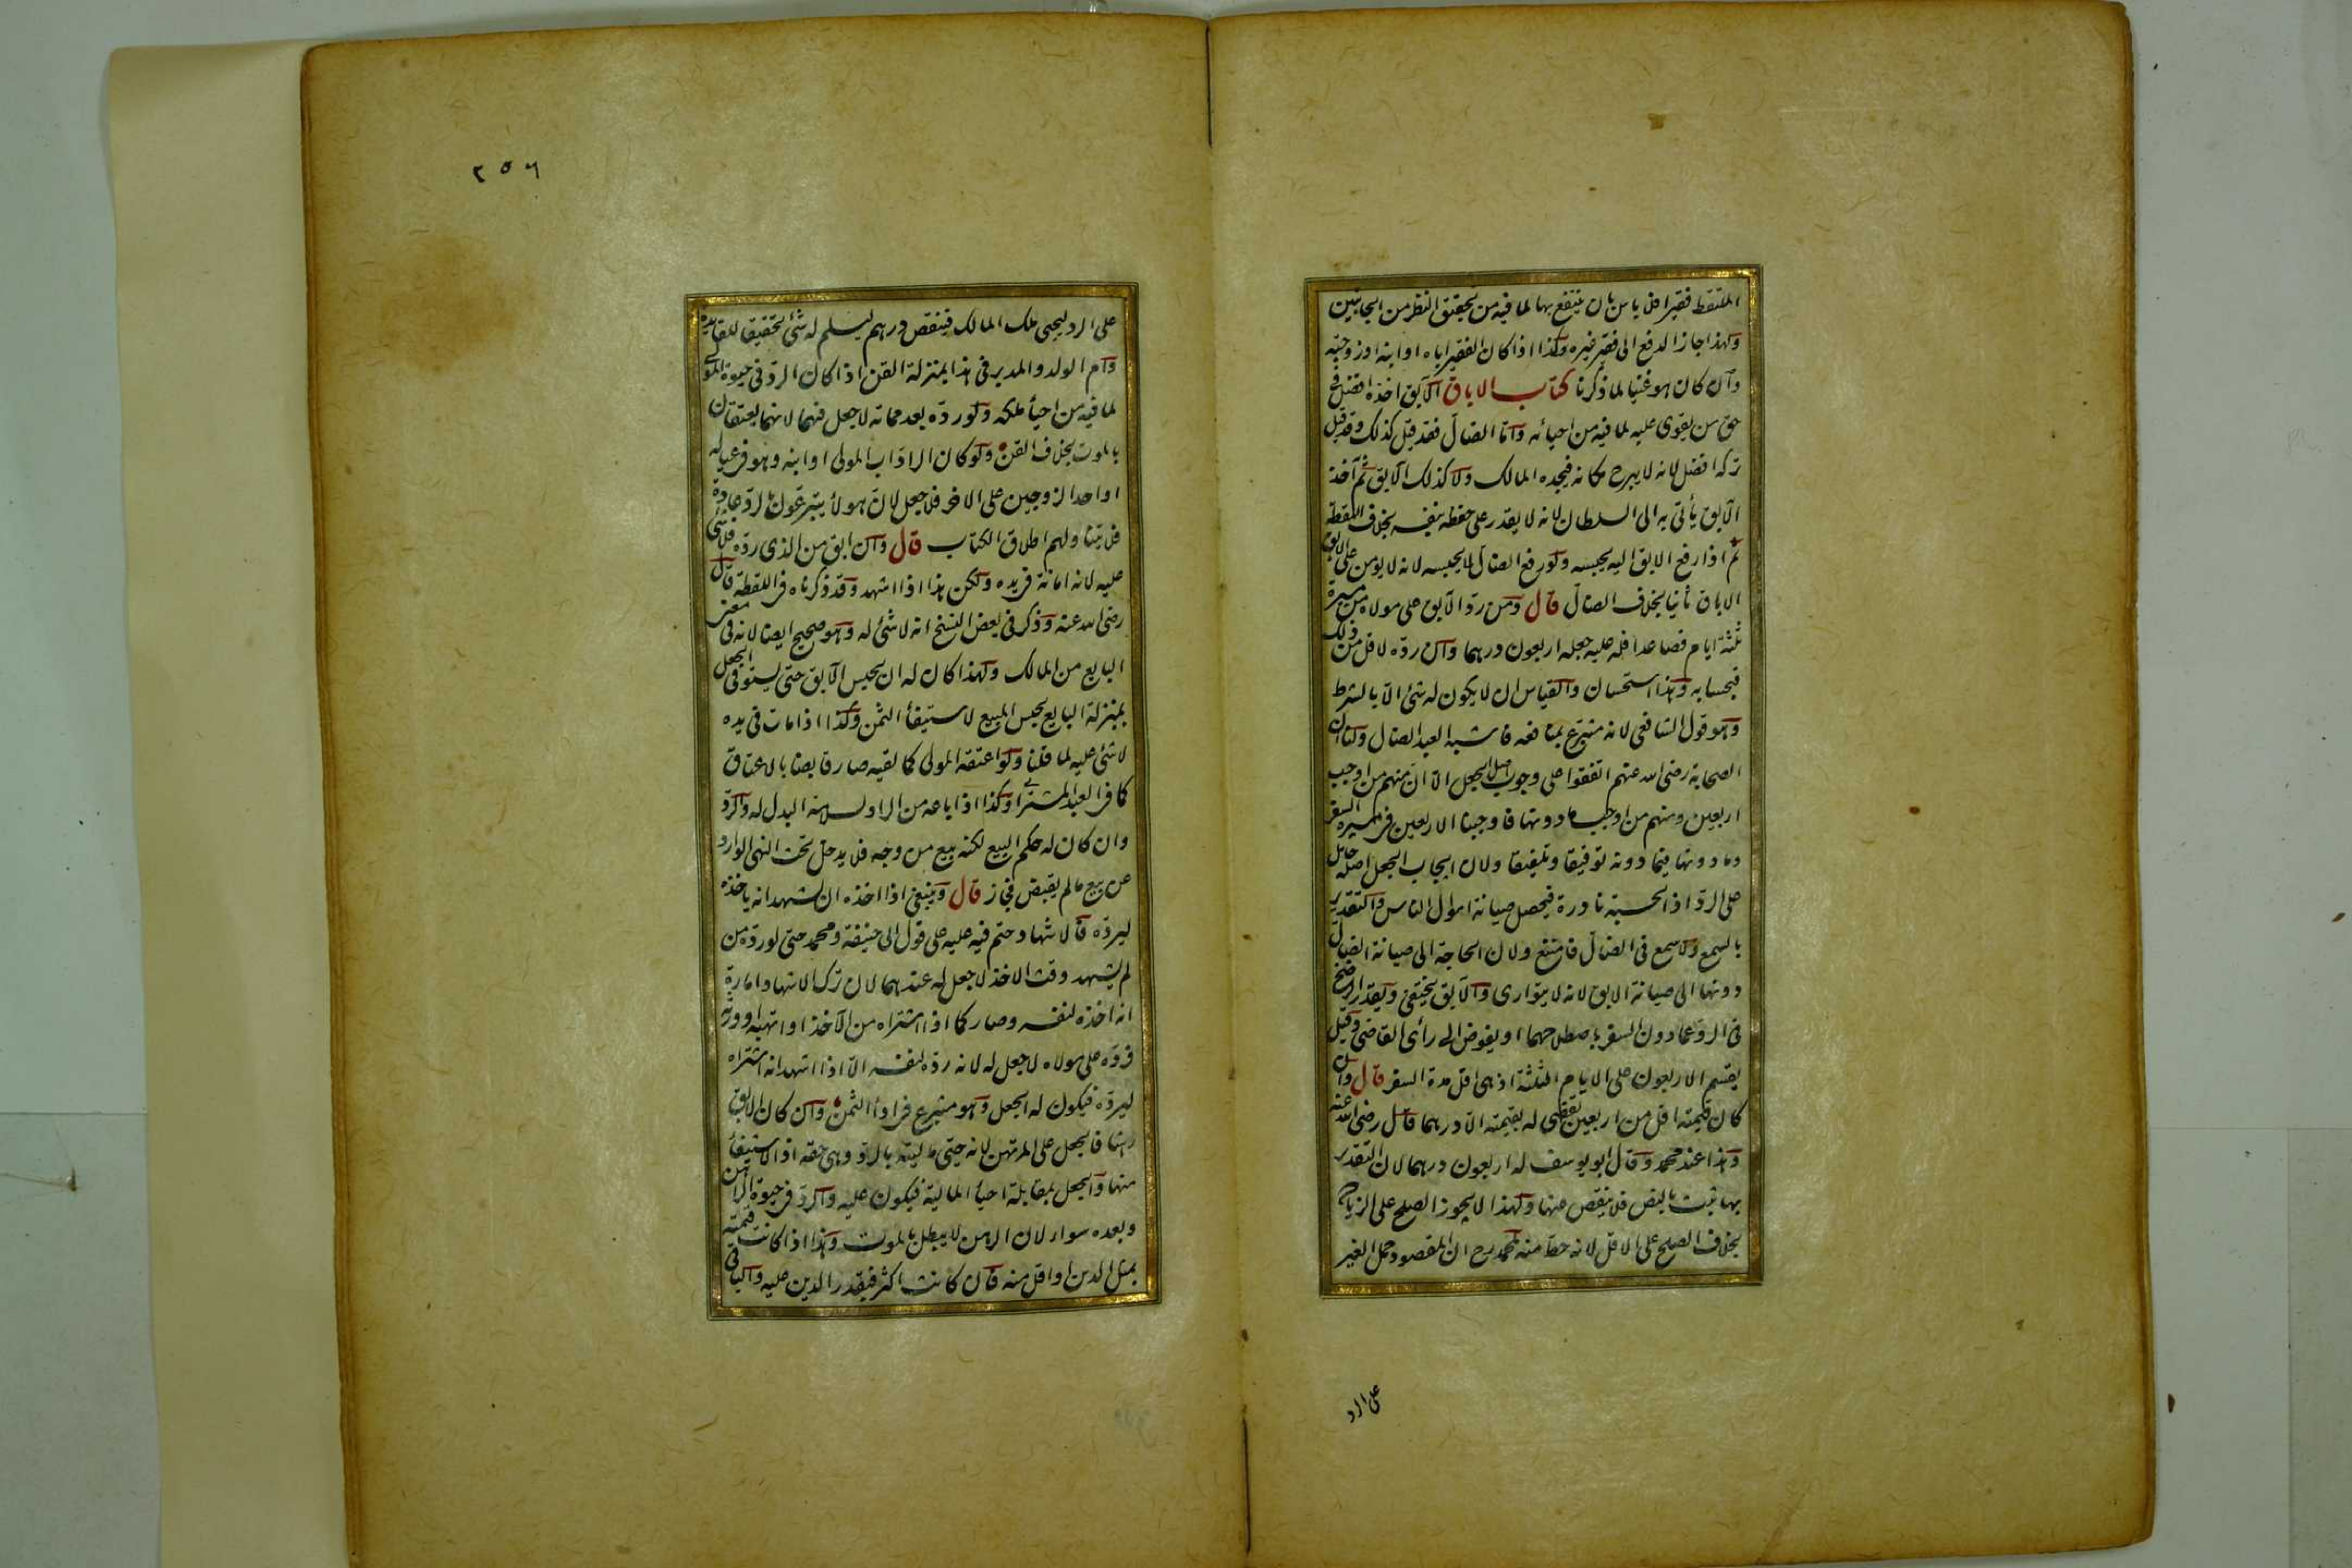 الملتقط فقيرا فلا باس بان ينتفع بها لما فيه من تحقيق النظر من الجانبين
ولهذا جاز الدفع الى فقير غيره وكذا اذا كان الفقير اباه او ابنه او زوجته
وان كان هو غنيا لما ذكرنا كتاب الاباق الآبق اخذه افضل فى
حق من يقوى عليه لما فيه من احيائه واما الضال فقد قيل كذلك وقد قيل
تركه افضل لانه لا يبرح مكانه فيجده المالك ولا كذلك الآبق ثم آخذ
الآبق يأتى به الى السلطان لانه لا يقدر على حفظه بنفسه بخلاف اللقطة
ثم اذا رفع الابق اليه يحبسه ولو رفع الضال لا يحبسه لانه لا يومن على الابق
الاباق ثانيا بخلاف الضال قال ومن رد الآبق على مولاه من مسيرة
ثلثة ايام فصاعدا فله عليه جعله اربعون درهما وان رده لاقل من ذلك
فبحسابه وهذا استحسان والقياس ان لا يكون له شئ الا بالشرط
وهو قول الشافعى لانه متبرع بمنافعه فاشبه العبد الضال ولنا ان
الصحابة رضى الله عنهم اتفقوا على وجوب اصل الجعل الا ان منهم من اوجب
اربعين ومنهم من اوجب ما دونها فاوجبنا الاربعين فى مسيرة السفر
وما دونها فيما دونه توفيقا وتلفيقا ولان ايجاب الجعل اصله حامل
على الرد اذ الحسبة نادرة فيحصل صيانة اموال الناس والتقدير
بالسمع ولا سمع فى الضال فامتنع ولان الحاجة الى صيانة الضال
دونها الى صيانة الابق لانه لا يتوارى والآبق يختفى ويقدر الرضخ
فى الرد عما دون السفر باصطلاحهما او يفوض الى رأى القاضى وقيل
يقسم الاربعون على الايام الثلثة اذ هى اقل مدة السفر قال وان
كان قيمته اقل من اربعين يقضى له بقيمته الا درهما قال رضى الله عنه
وهذا عند محمد وقال ابو يوسف له اربعون درهما لان التقدير
بها ثبت بالنص فلا ينقص عنها ولهذا لا يجوز الصلح على الزيادة
بخلاف الصلح على الاقل لانه حط منه لمحمد رح ان المقصود حمل الغير
على الرد
٢٥٦
على الرد ليحيى ملك المالك فينقص درهم ليسلم له شئ تحقيقا للفايدة
وام الولد والمدبر فى هذا بمنزلة القن اذا كان الرد فى حيوة المولى
لما فيه من احيأ ملكه ولو رده بعد مماته لا جعل فيهما لانهما يعتقان
بالموت بخلاف القن ولو كان الراد اب المولى او ابنه وهو فى عياله
او احد الزوجين على الاخر فلا جعل لان هولأ يتبرعون بالرد عادة
فلا يتناولهم اطلاق الكتاب قال وان ابق من الذى رده فلا شئ
عليه لانه امانة فى يده ولكن هذا اذا اشهد وقد ذكرناه فى اللقطة قال
رضى الله عنه وذكر فى بعض النسخ انه لا شئ له وهو صحيح ايضا لانه فى معنى
البايع من المالك ولهذا كان له ان يحبس الآبق حتى يستوفى الجعل
بمنزلة البايع يحبس المبيع لاستيفأ الثمن وكذا اذا مات فى يده
لا شئ عليه لما قلنا ولو اعتقه المولى كما لقيه صار قابضا بالاعتاق
كما فى العبد المشترى وكذا اذا باعه من الراد لسلامة البدل له والرد
وان كان له حكم البيع لكنه بيع من وجه فلا يدخل تحت النهى الوارد
عن بيع ما لم يقبض فجاز قال وينبغى اذا اخذه ان يشهد انه ياخذه
ليرده فالاشهاد حتم فيه عليه على قول ابى حنيفة ومحمد حتى لو رده من
لم يشهد وقت الاخذ لا جعل له عندهما لان ترك الاشهاد امارة
انه اخذه لنفسه وصار كما اذا اشتراه من الآخذ او اتهبه او ورثه
فرده على مولاه لا جعل له لانه رده لنفسه الا اذا اشهد انه اشتراه
ليرده فيكون له الجعل وهو متبرع فى ادأ الثمن وان كان الابق
رهنا فالجعل على المرتهن لانه حيى ماليته بالرد وهى حقه اذ الاستيفأ
منها والجعل بمقابلة احيأ المالية فيكون عليه والرد فى حيوة الراهن
وبعده سواء لان الرهن لا يبطل بالموت وهذا اذا كانت قيمته
بمثل الدين او اقل منه فان كانت اكثر فبقدر الدين عليه والباقى